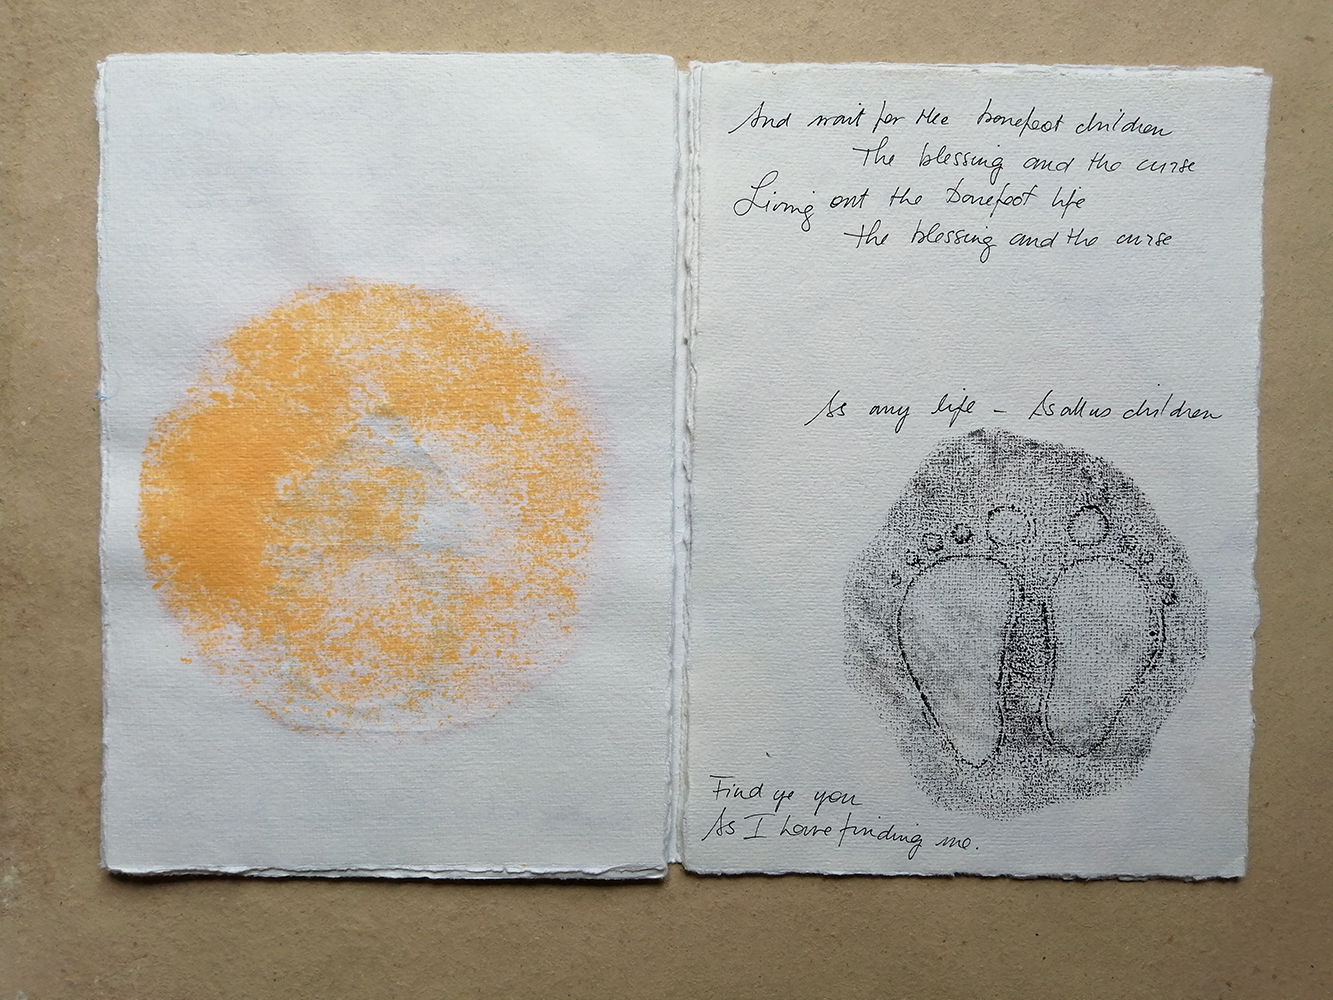 And wait for the barefoot children
The blessing and the curse
Living out the barefoot life
the blessing and the curse
As any life – As all us children
Find ye you
As I have finding me.